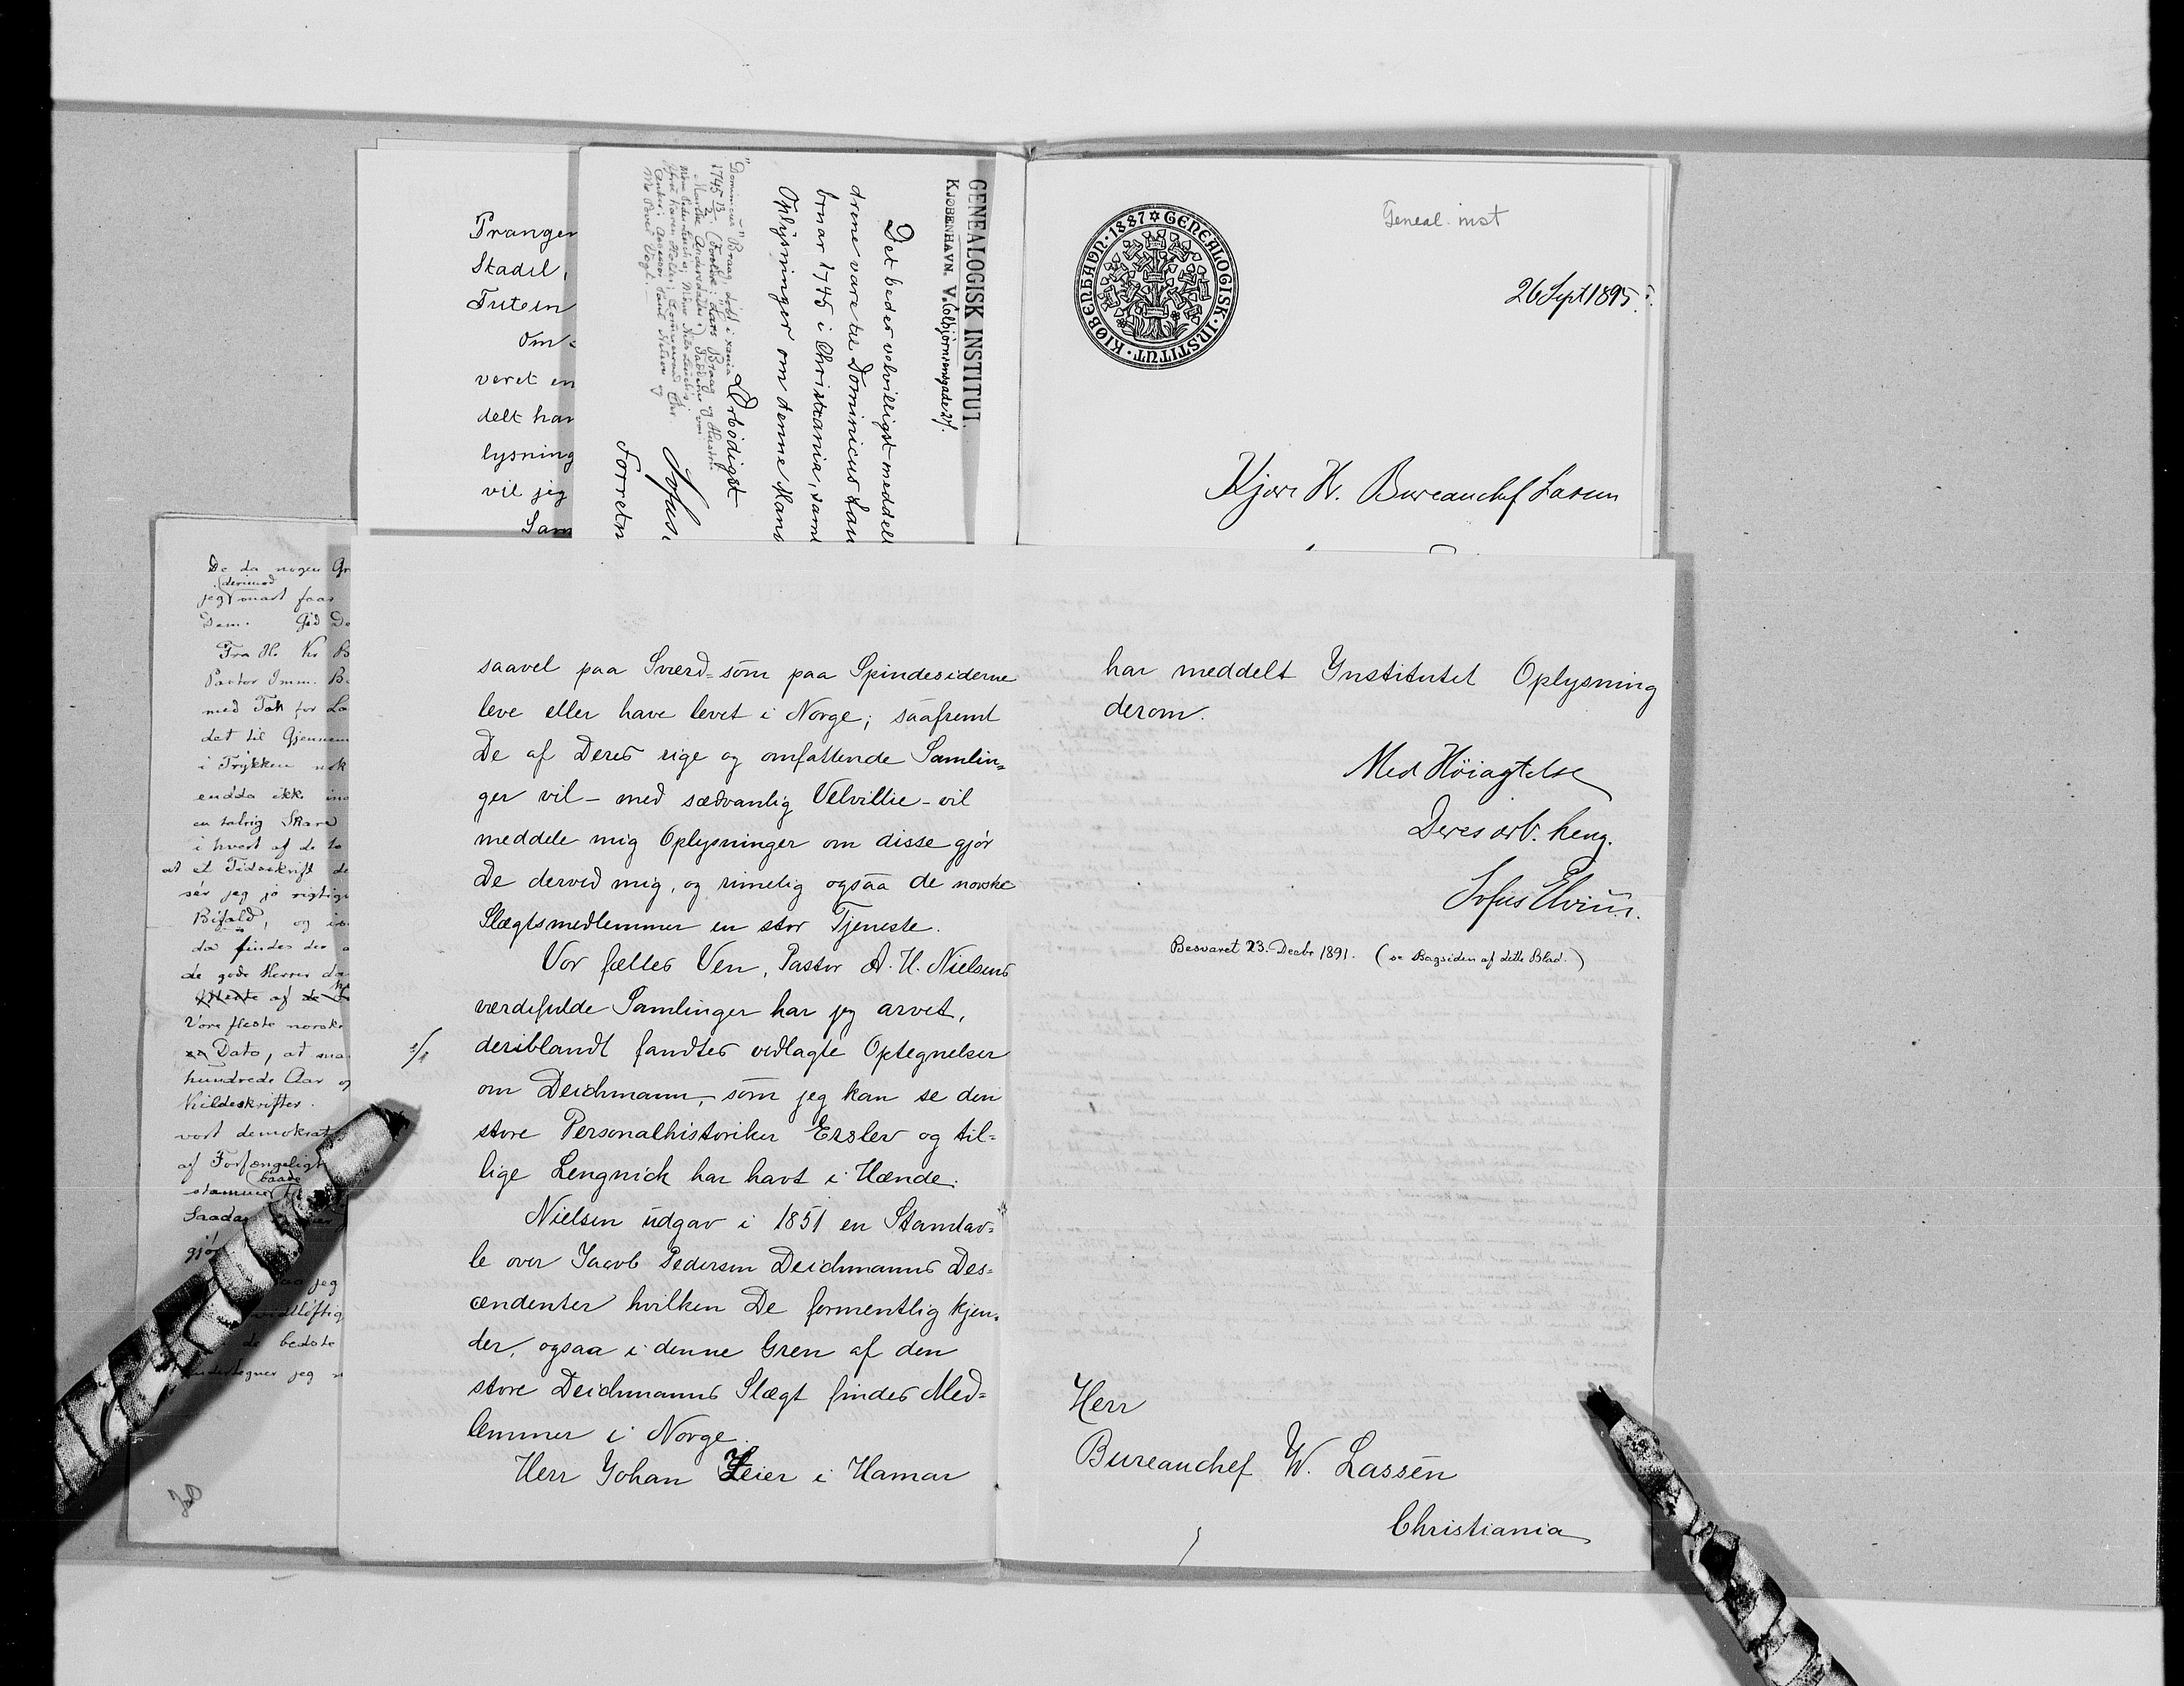 Pranger
Stadil,
Tutein
Om
veret en
delt har
lysning
vil jeg
Sam
GENEALOGISK INSTITUT.
KJØBENHAVN. V. Colbjørnsensgade 21.
Det bedes velvilligst meddelt
drene vare til Dominicus Lau
bruar 1745 i Christiania, saml
Oplysninger om denne Mans
Ærbødigst
Sofus
Forretn
"Dominicus" Braag, døbt i
1745 (Forældre: Lars Braag og Hustru
GENEALOGISK · INSTITUT · KIØBENHAVN · 1887
Geneal. inst
26 Sept 1895.
Kjære Hr. Bureauchef Lassen
De da nogen Gr
(derimod
jeg snart faar
Dem. Gid De
Fra Hr. Kr B
Pastor Imm. B
med Tak for La
det til Gjennem
i Trykken nok
endda ikke ind
en talrig Skare
i hvert af de to
at et Tidsskrift de
sér jeg jo rigtig
Bifald, og
da findes der a
de gode Herrer da
af de
Vore fleste norske
Dato, at ma
hundrede Aar og
Kildeskrifter.
vort demokrat
af Forfængeligh
baade
stammer
Saada
gjør
jeg
vidtløftig
de bedste
undertegner jeg
saavel paa Sværd=som paa Spindesiderne
leve eller have levet i Norge; saafremt
De af Deres rige og omfattende Samlin=
ger vil – med sædvanlig Velvillie – vil
meddele mig Oplysninger om disse gjør
De derved mig, og rimelig ogsaa de norske
Slægtsmedlemmer en stor Tjeneste.
Vor fælles Ven, Pastor A. H. Nielsens
værdifulde Samlinger har jeg arvet,
deriblandt fandtes vedlagte Optegnelser
om Deichmann, som jeg kan se den
store Personalhistoriker Erslev og til=
lige Lengnick har havt i Hænde.
Nielsen udgav i 1851 en Stamtav=
le over Jacob Pedersen Deichmanns Des=
cendenter hvilken De formentlig kjen=
der, ogsaa i denne Gren af den
store Deichmanns Slægt findes Med=
lemmer i Norge.
Herr Johan Heier i Hamar
har meddelt Institutet Oplysning
derom.
Med Høiagtelse
Deres ærb. heng.
Sofus Elvius.
Besvaret 23. Decbr 1891. (se Bagsiden af dette Blad.)
Herr
Bureauchef W. Lassen
Christiania